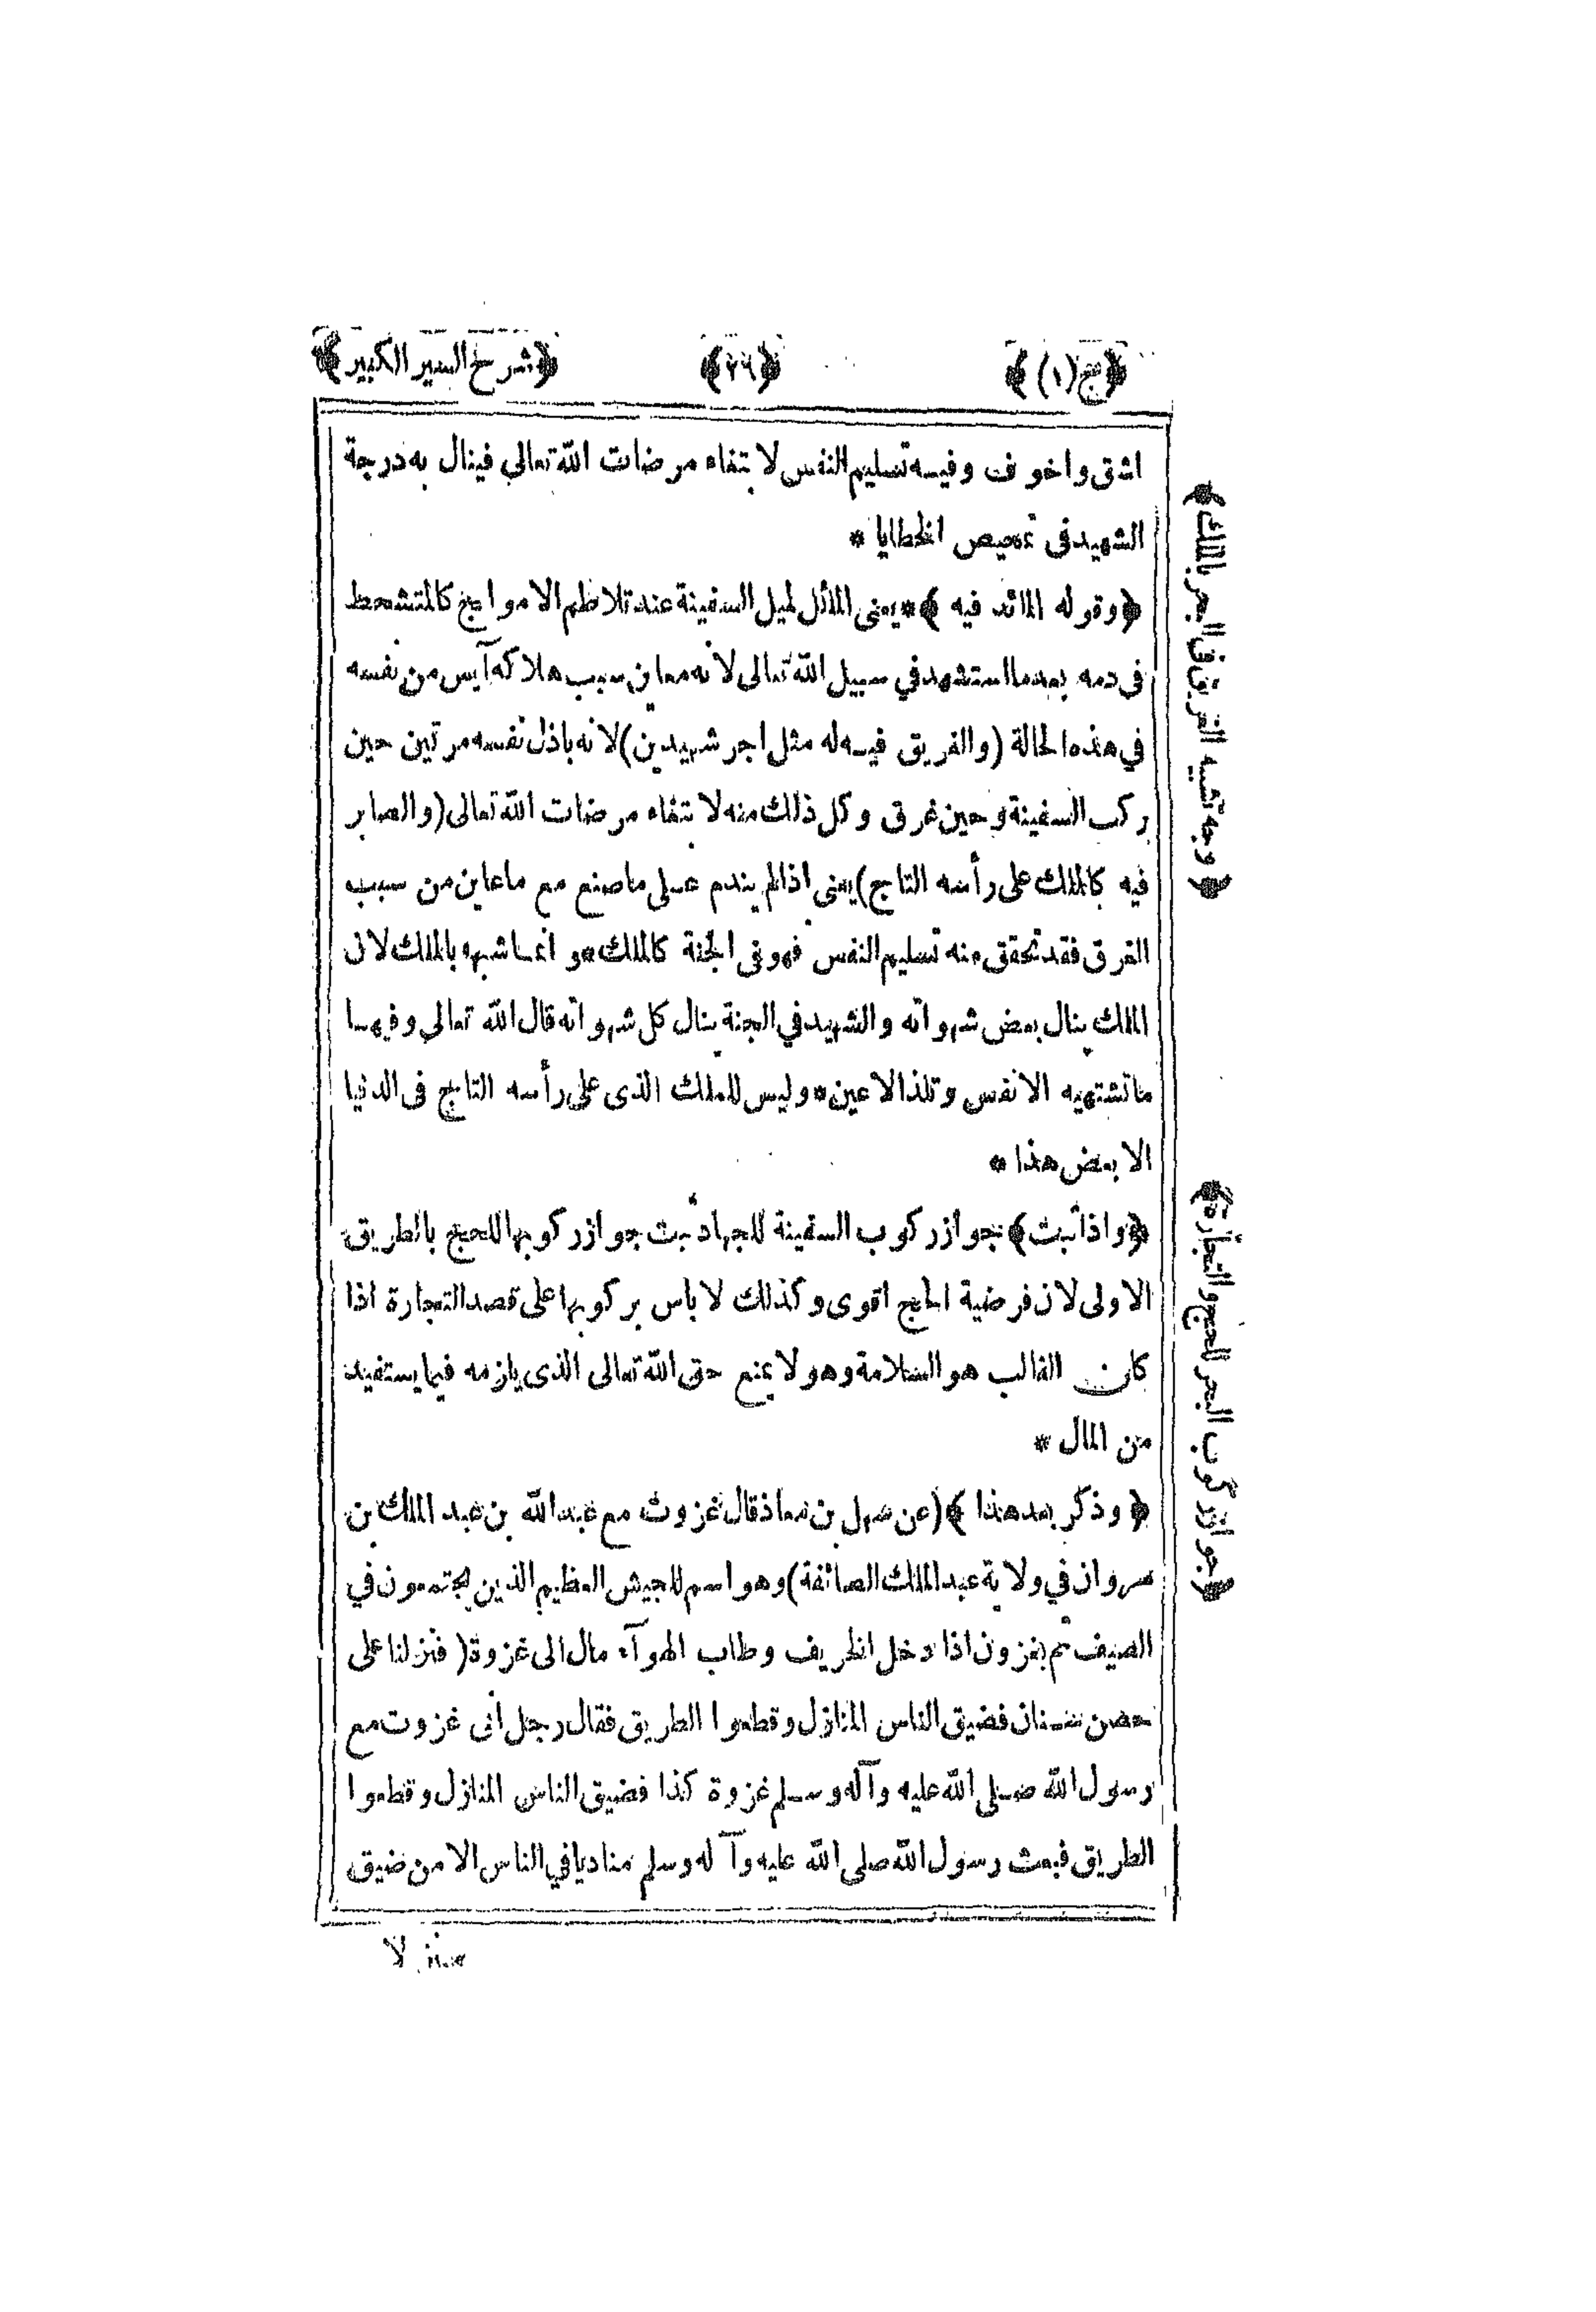 ﴿ج(١)﴾ ﴿٢٦﴾ ﴿شرح السير الكبير﴾
اشق واخوف وفيه تسليم النفس لابتغاء مرضات الله تعالى فينال به درجة
الشهيد فى تمحيص الخطايا *
﴿وقوله المائد فيه﴾* يعنى المائل لميل السفينة عند تلاطم الامواج كالمتشحط
فى دمه بعد ما استشهد في سبيل الله تعالى لانه معاين سبب هلاكه آيس من نفسه
في هذه الحالة (والغريق فيه له مثل اجر شهيدين) لانه باذل نفسه مرتين حين
ركب السفينة وحين غرق وكل ذلك منه لابتغاء مرضات الله تعالى (والصابر
فيه كالملك على رأسه التاج) يعنى اذا لم يندم على ما صنع مع ما عاين من سبب
الغرق فقد تحقق منه تسليم النفس فهو فى الجنة كالملك* وانما شبهه بالملك لان
الملك ينال بعض شهواته والشهيد في الجنة ينال كل شهواته قال الله تعالى وفيها
ما تشتهيه الانفس وتلذ الاعين* وليس للملك الذى على رأسه التاج فى الدنيا
الا بعض هذا *
﴿واذا ثبت﴾ جواز ركوب السفينة للجهاد ثبت جواز ركوبها للحج بالطريق
الاولى لان فرضية الحج اقوى وكذلك لا باس بركوبها على قصد التجارة اذا
كان الغالب هو السلامة وهو لا يمنع حق الله تعالى الذى يلزمه فيما يستفيد
من المال *
﴿وذكر بعد هذا﴾ (عن سهل بن معاذ قال غزوت مع عبد الله بن عبد الملك بن
مروان في ولاية عبد الملك الصائفة) وهو اسم للجيش العظيم الذين يجتمعون في
الصيف ثم يغزون اذا دخل الخريف وطاب الهوآء مال الى غزوة (فنزلنا على
حصن سنان فضيق الناس المنازل وقطعوا الطريق فقال رجل انى غزوت مع
رسول الله صلى الله عليه وآله وسلم غزوة كذا فضيق الناس المنازل وقطعوا
الطريق فبعث رسول الله صلى الله عليه وآله وسلم مناديا في الناس الا من ضيق
منزلا
﴿وجه تشبيه الغريق فى البحر بالملك﴾
﴿جواز ركوب البحر للحج والتجارة﴾